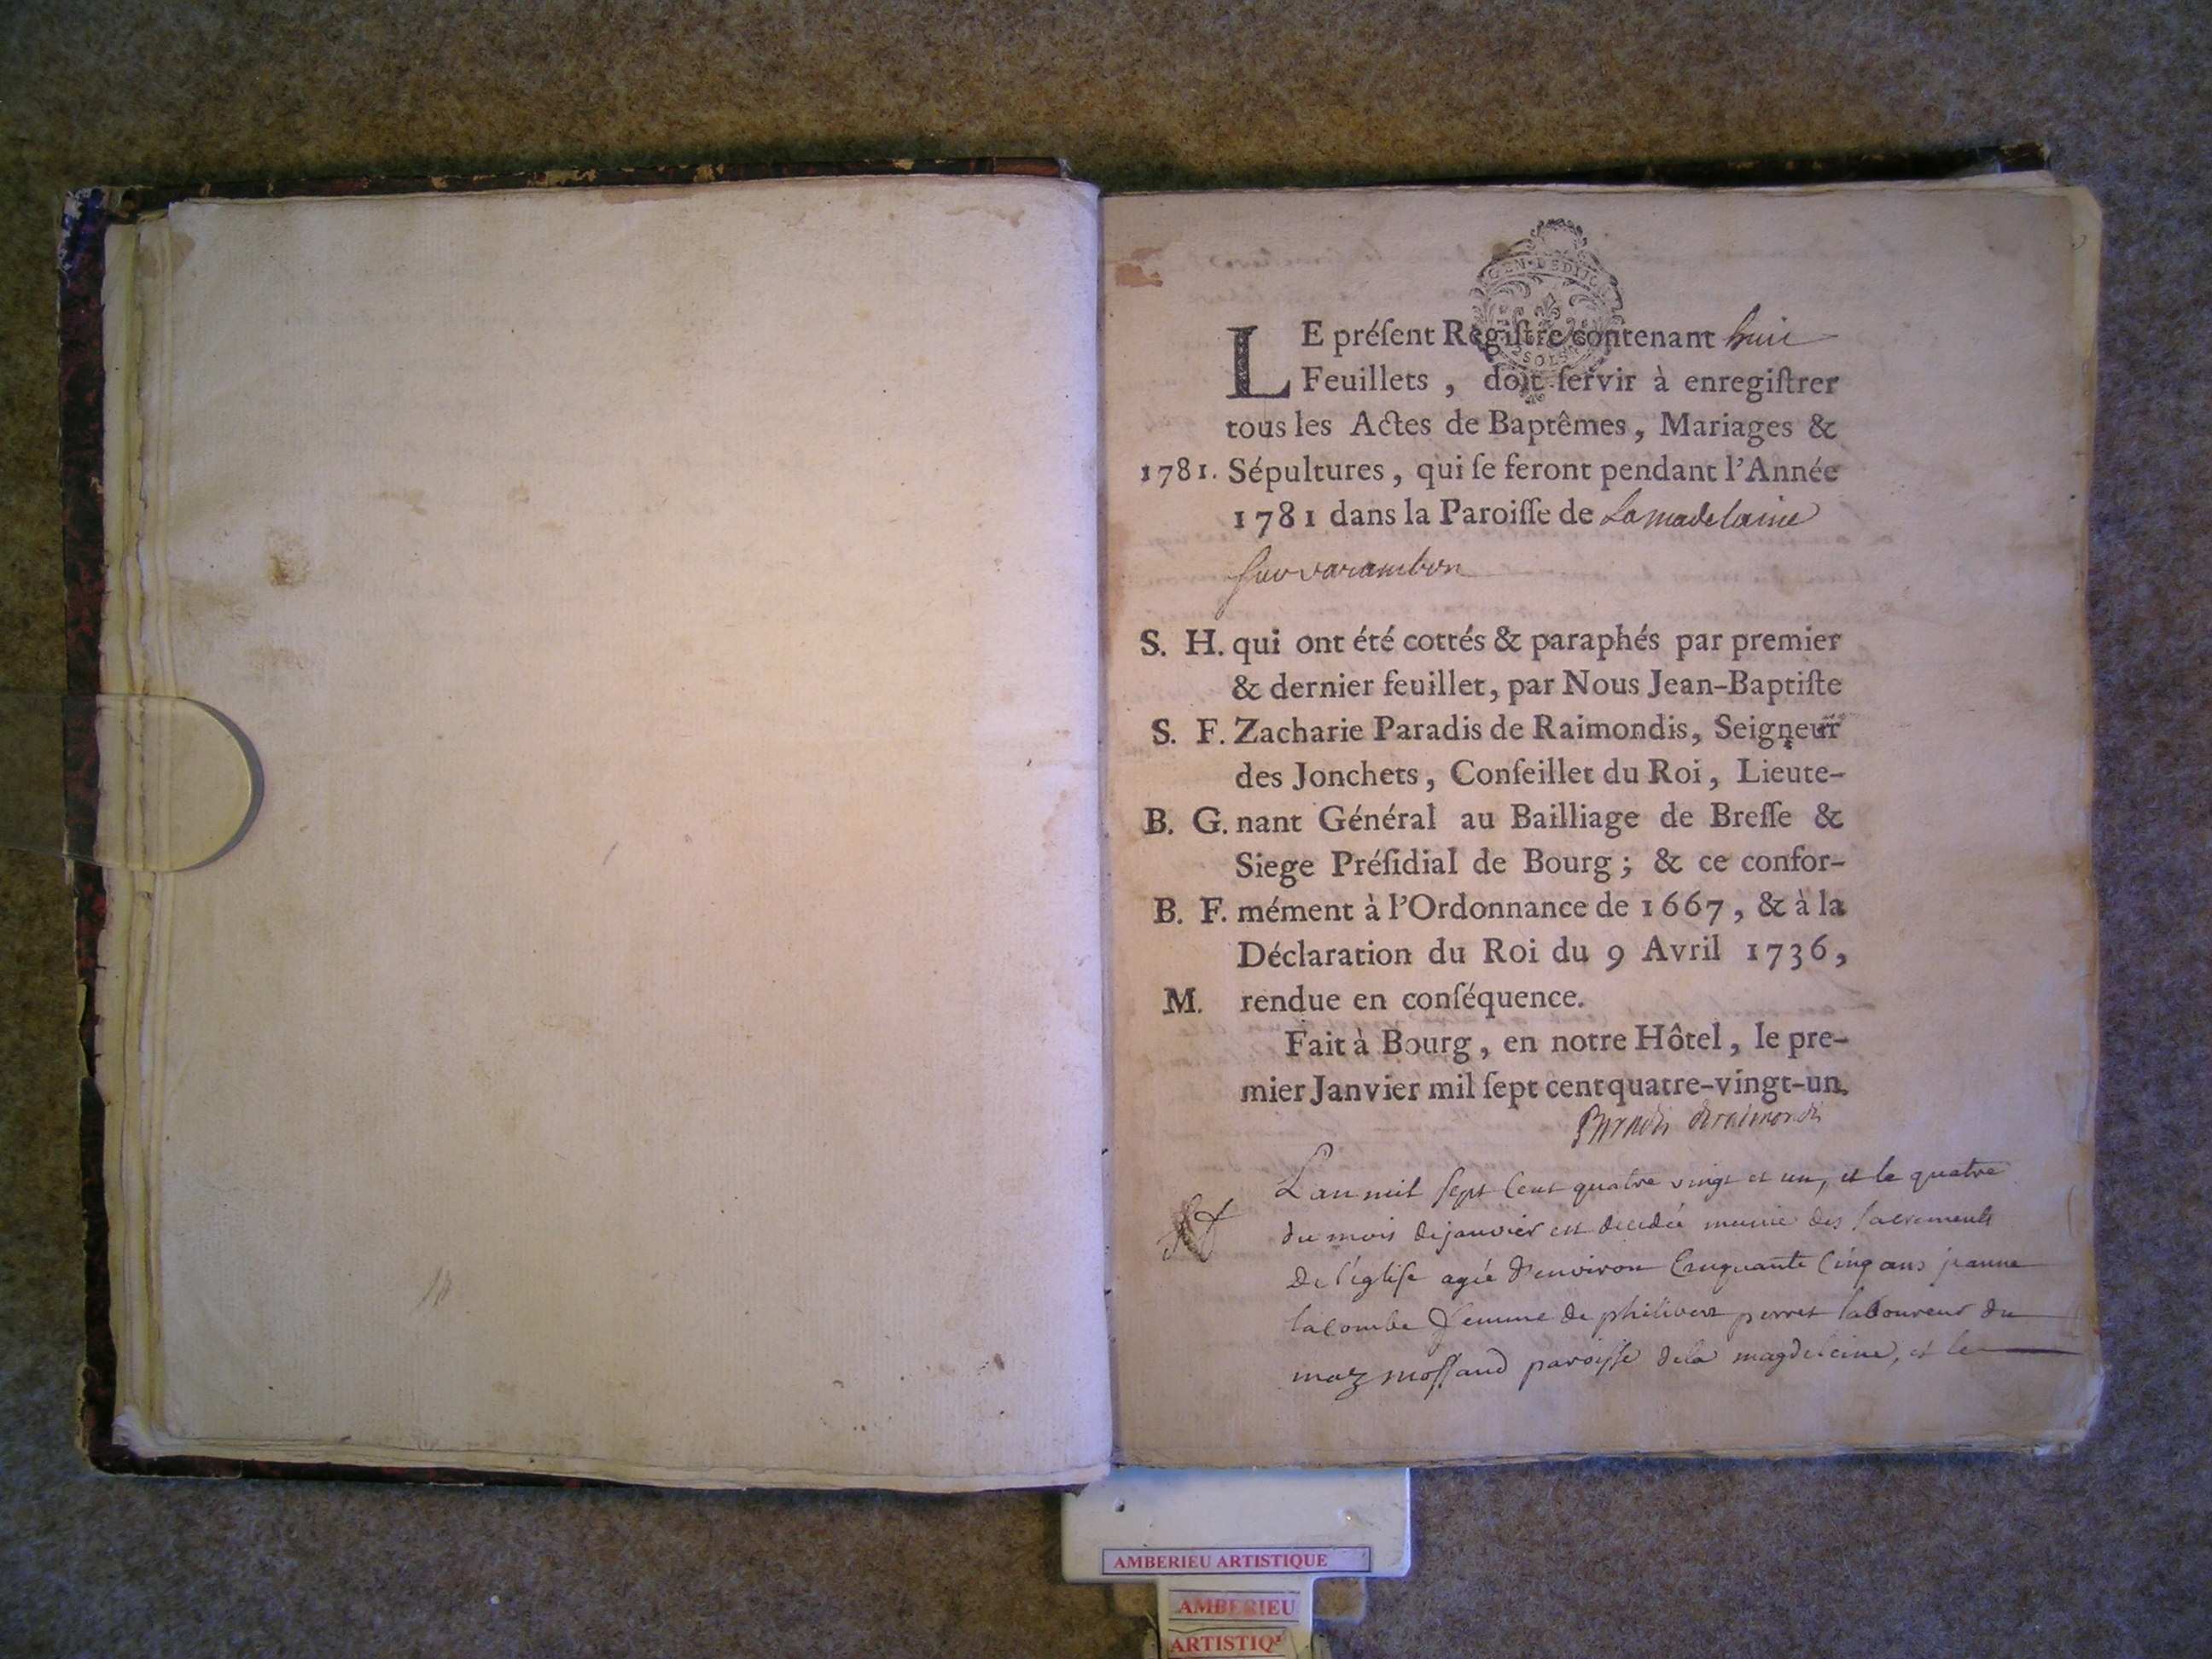 GEN. DE DIJON
SOLS
LE préſent Regiſtre contenant huit
Feuillets, doit ſervir à enregiſtrer
tous les Actes de Baptêmes, Mariages &
1781. Sépultures, qui ſe feront pendant l'Année
1781 dans la Paroiſſe de La madelaine
sur varambon
S. H. qui ont été cottés & paraphés par premier
& dernier feuillet, par Nous Jean-Baptiſte
S. F. Zacharie Paradis de Raimondis, Seigneur
des Jonchets, Conſeillet du Roi, Lieute-
B. G. nant Général au Bailliage de Breſſe &
Siege Préſidial de Bourg; & ce confor-
B. F. mément à l'Ordonnance de 1667, & à la
Déclaration du Roi du 9 Avril 1736,
M. rendue en conſéquence.
Fait à Bourg, en notre Hôtel, le pre-
mier Janvier mil ſept cent quatre-vingt-un.
Paradis deraimondis
L'an mil sept cent quatre vingt et un, et le quatre
du mois de janvier est decedée munie des sacrements
De l'église agée d'environ Cinquante Cinq ans jeanne
lacombe femme de philibert perret laboureur du
maz mossaud paroisse dela magdeleine, et le
AMBERIEU ARTISTIQUE
AMBERIEU
ARTISTIQ